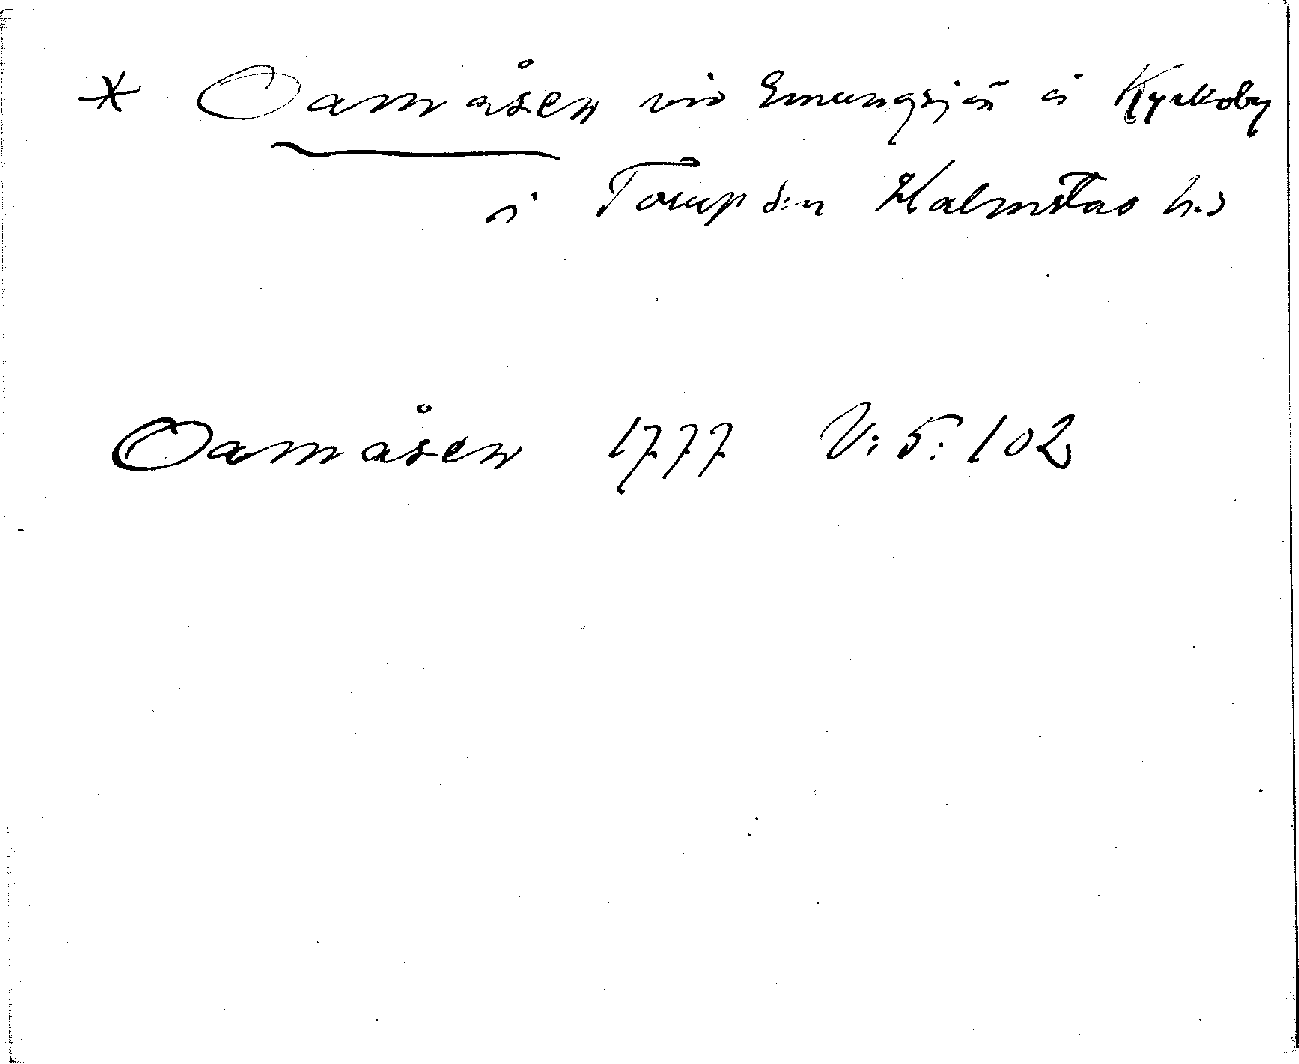 * Oamåsen vid Emungsjö å Kyrkoby
i Torup s:n Halmstad h.d
Oamåsen 1777 V: 5: 102